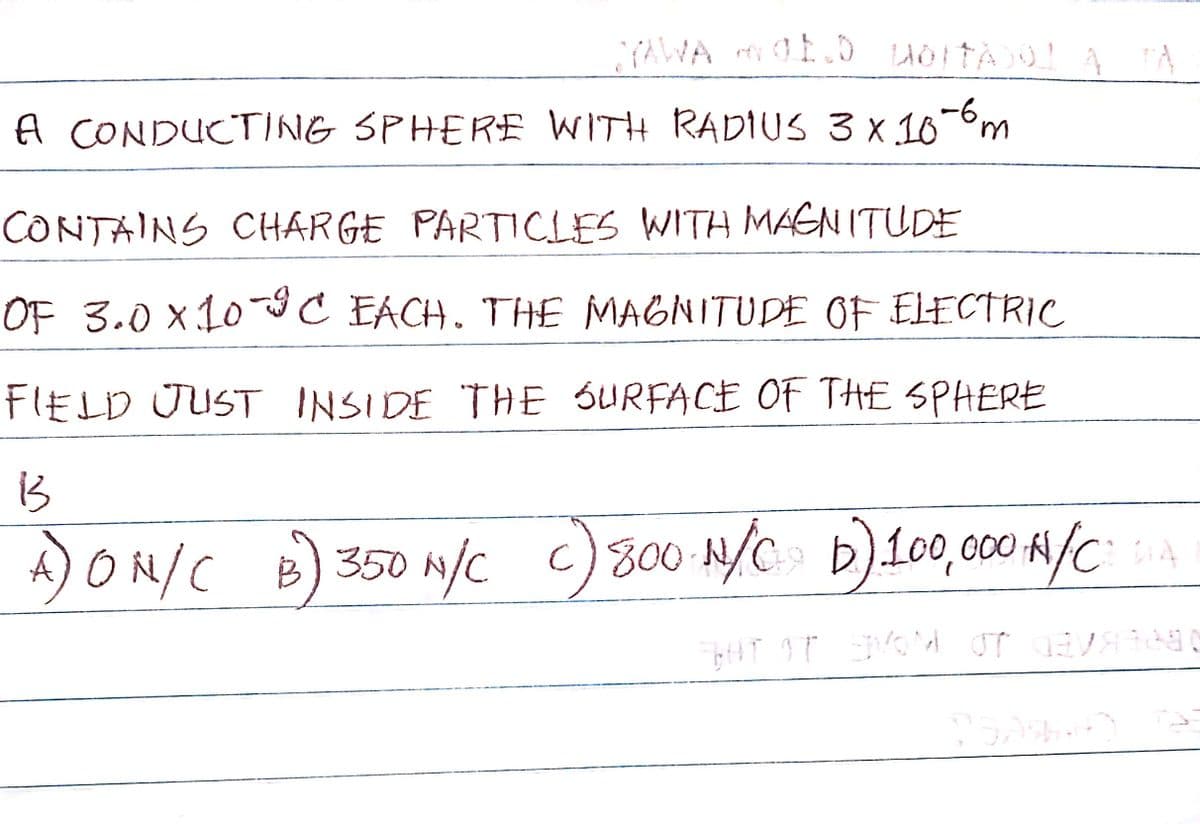 A CONDUCTING SPHERE WITH RADIUS 3 x 10⁻⁶m
CONTAINS CHARGE PARTICLES WITH MAGNITUDE
OF 3.0 x 10⁻⁹ C EACH. THE MAGNITUDE OF ELECTRIC
FIELD JUST INSIDE THE SURFACE OF THE SPHERE
IS
A) 0 N/C B) 350 N/C C) 800 N/C D) 100,000 N/C